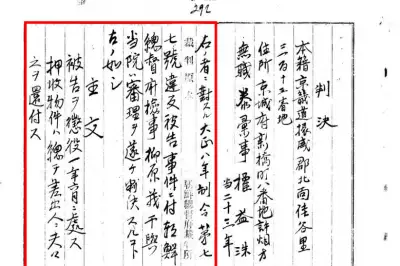 292
判決
本籍京畿道振威郡北面佳谷里
三百十五番地
住所京城府新橋町八番地許烟方
無職 景事 權益洙
当二十三年
右ノ者ニ對スル大正八年制令第七
七號違反被告事件ニ付朝鮮
總督府檢事柳原茂干與
当院ハ審理ヲ遂ケ判決スルコト
左ノ如シ
主文
被告ヲ懲役一年六月ニ處ス
押收物件ハ總テ差出人ニ夫々
之ヲ還付ス